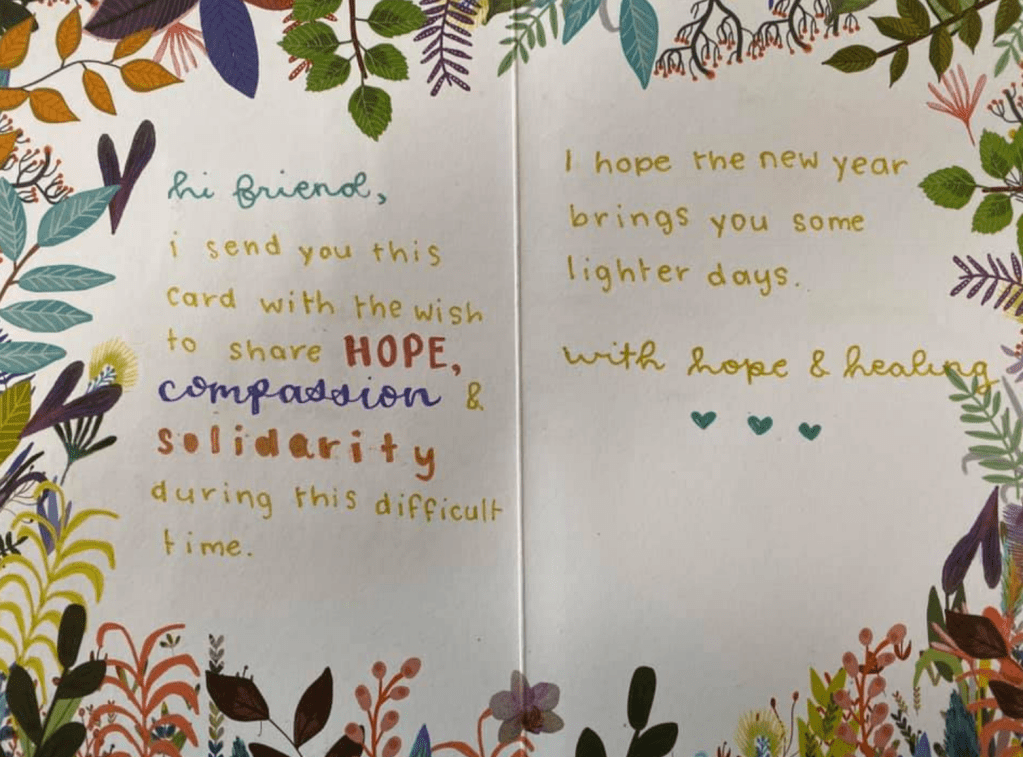 hi friend,
i send you this
card with the wish
to share HOPE,
compassion &
solidarity
during this difficult
time.
I hope the new year
brings you some
lighter days.
with hope & healing